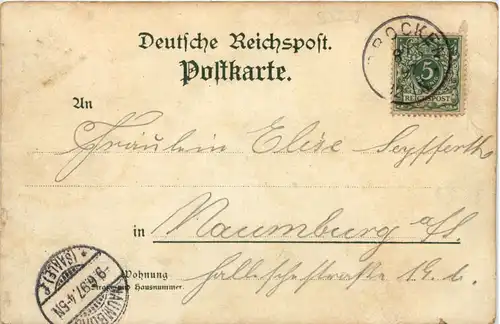 Deutsche Reichspost.
Postkarte.
BROCKEN
5
REICHSPOST
An
Fräulein Elise Seyfferth
in Naumburg a/S.
Wohnung
(Straße und Hausnummer)
Hallischestraße
NAUMBURG
* (SAALE) *
9.6.97. 4-5N.